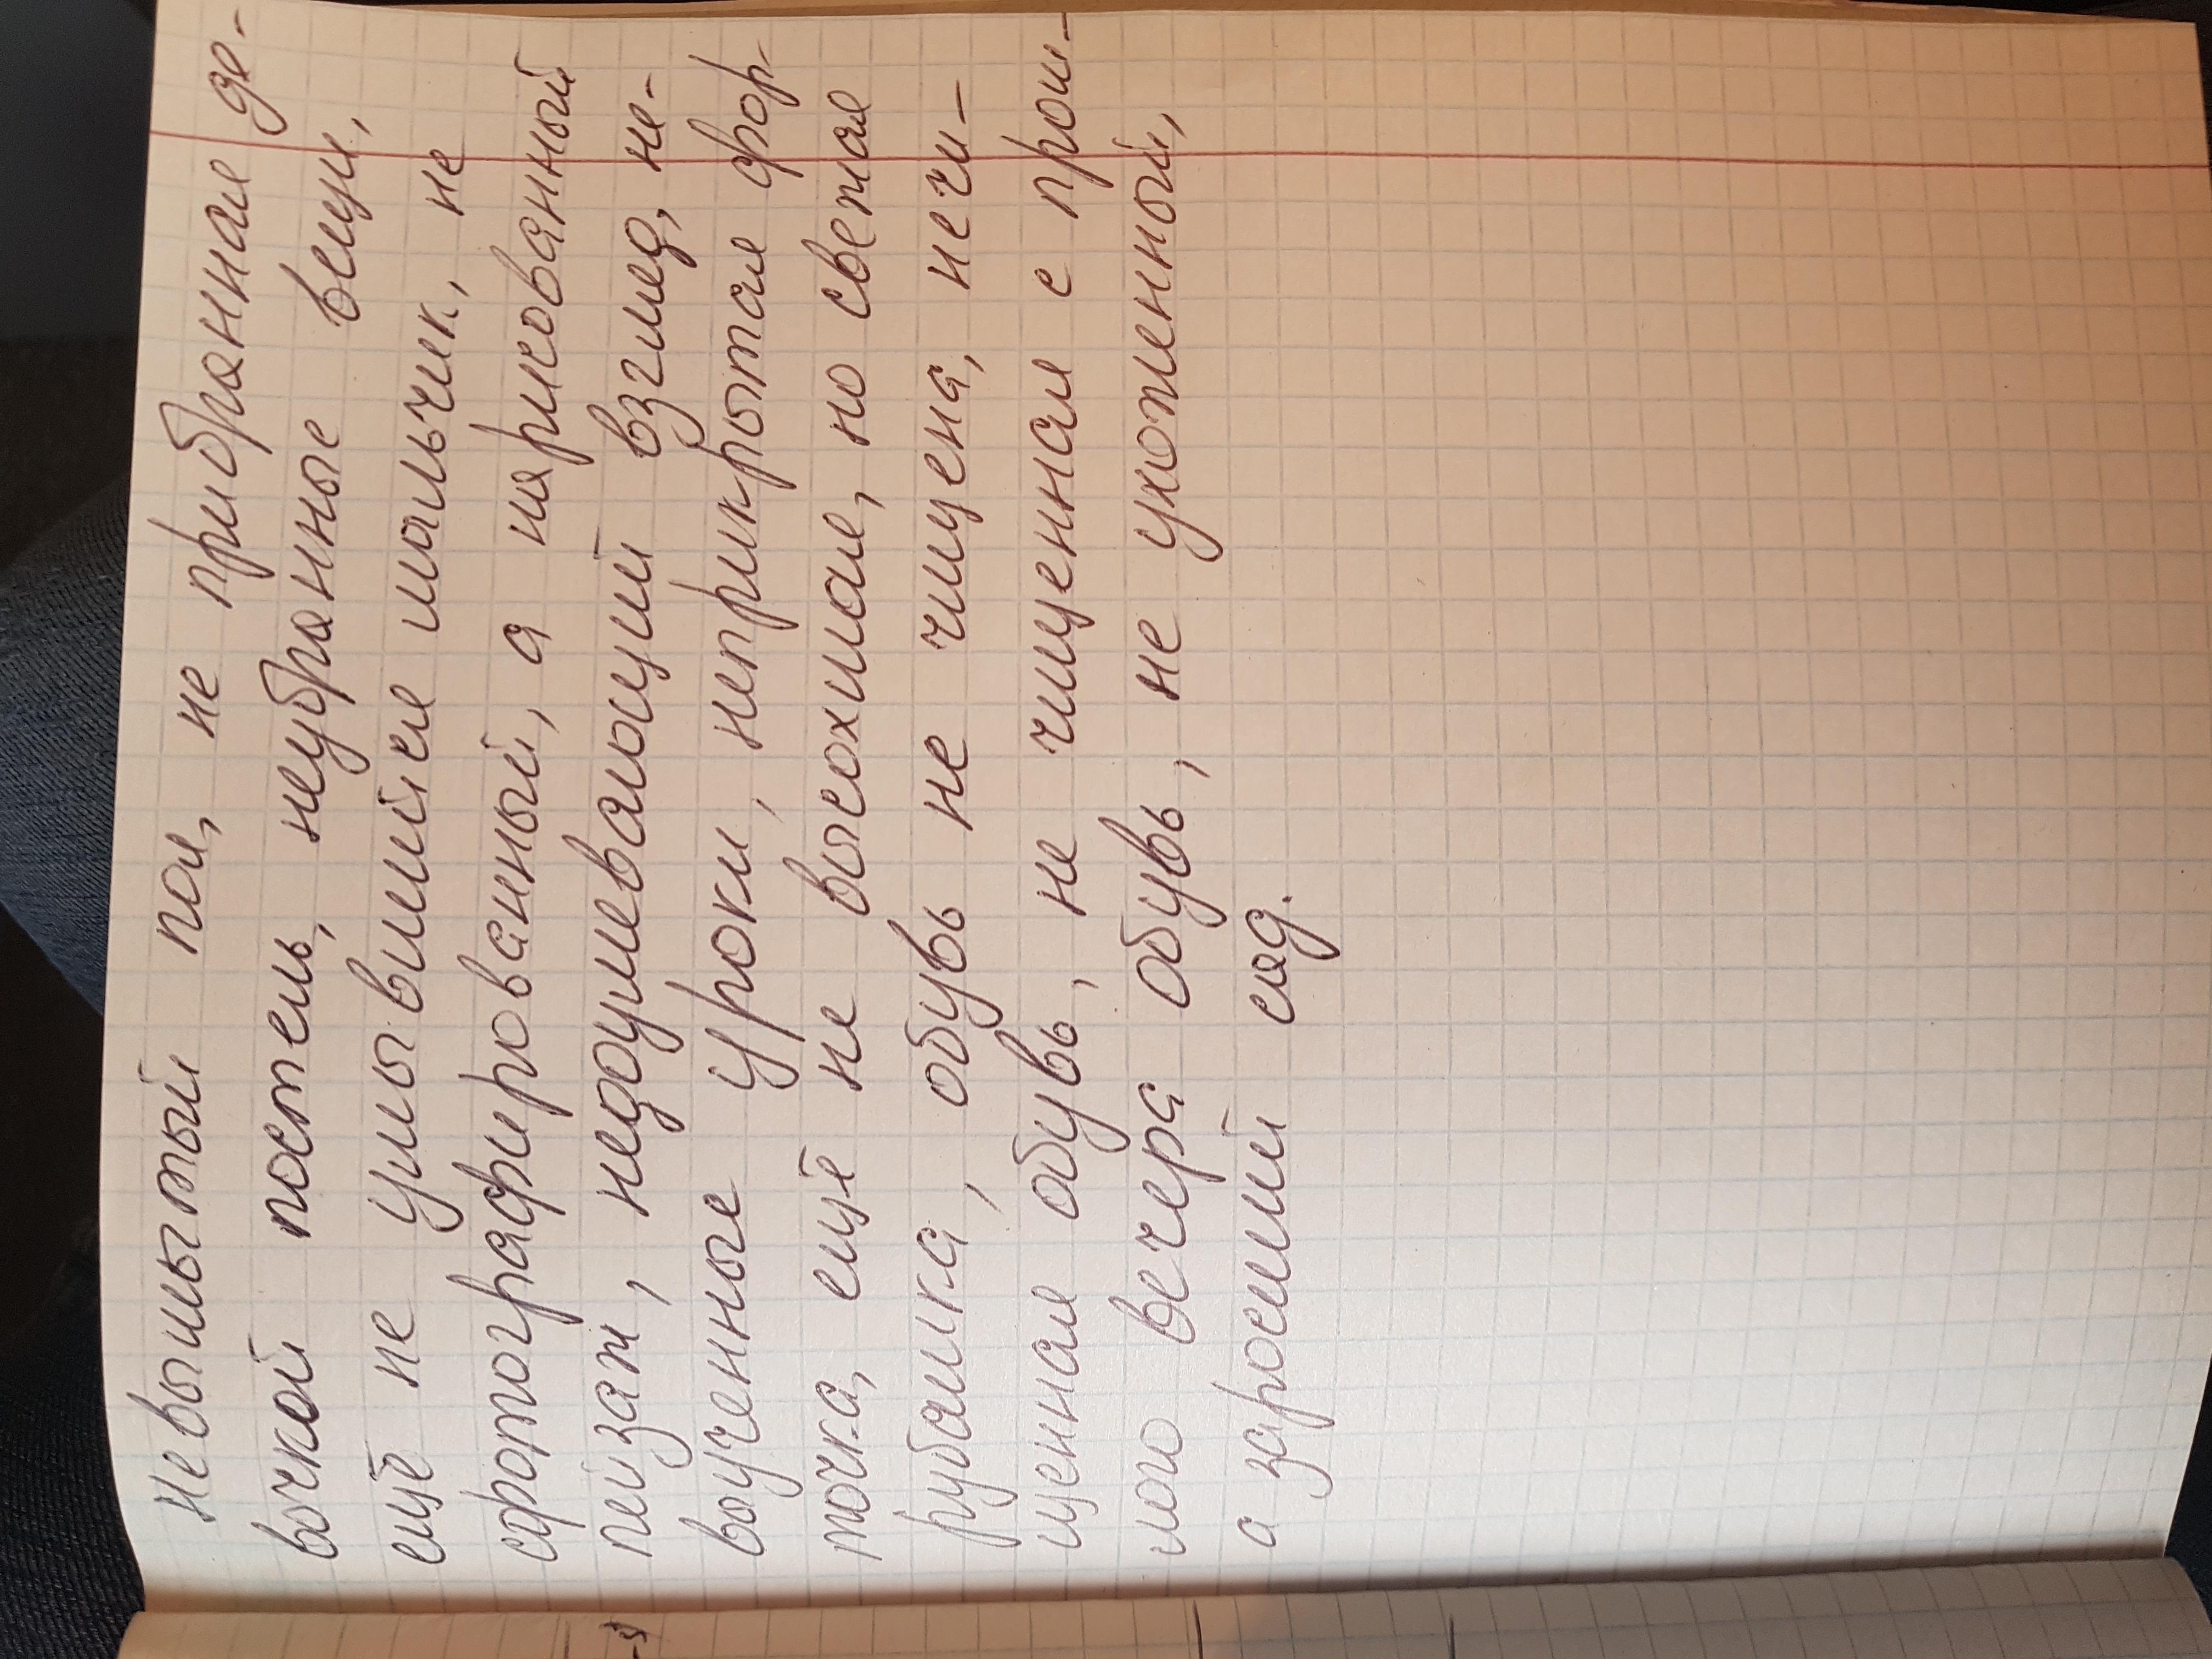 Невымытый пол, не прибранная де-
вочкой постель, неубранные вещи,
ещё не умывшийся мальчик, не
сфотографированный, а нарисованный
пейзаж, недоумевающий взгляд, не-
выученные уроки, неприкрытая фор-
точка, ещё не высохшая, но светлая
рубашка, обувь не чищена, нечи-
щенная обувь, не чищенная с прош-
лого вечера обувь, не ухоженный,
а заросший сад.